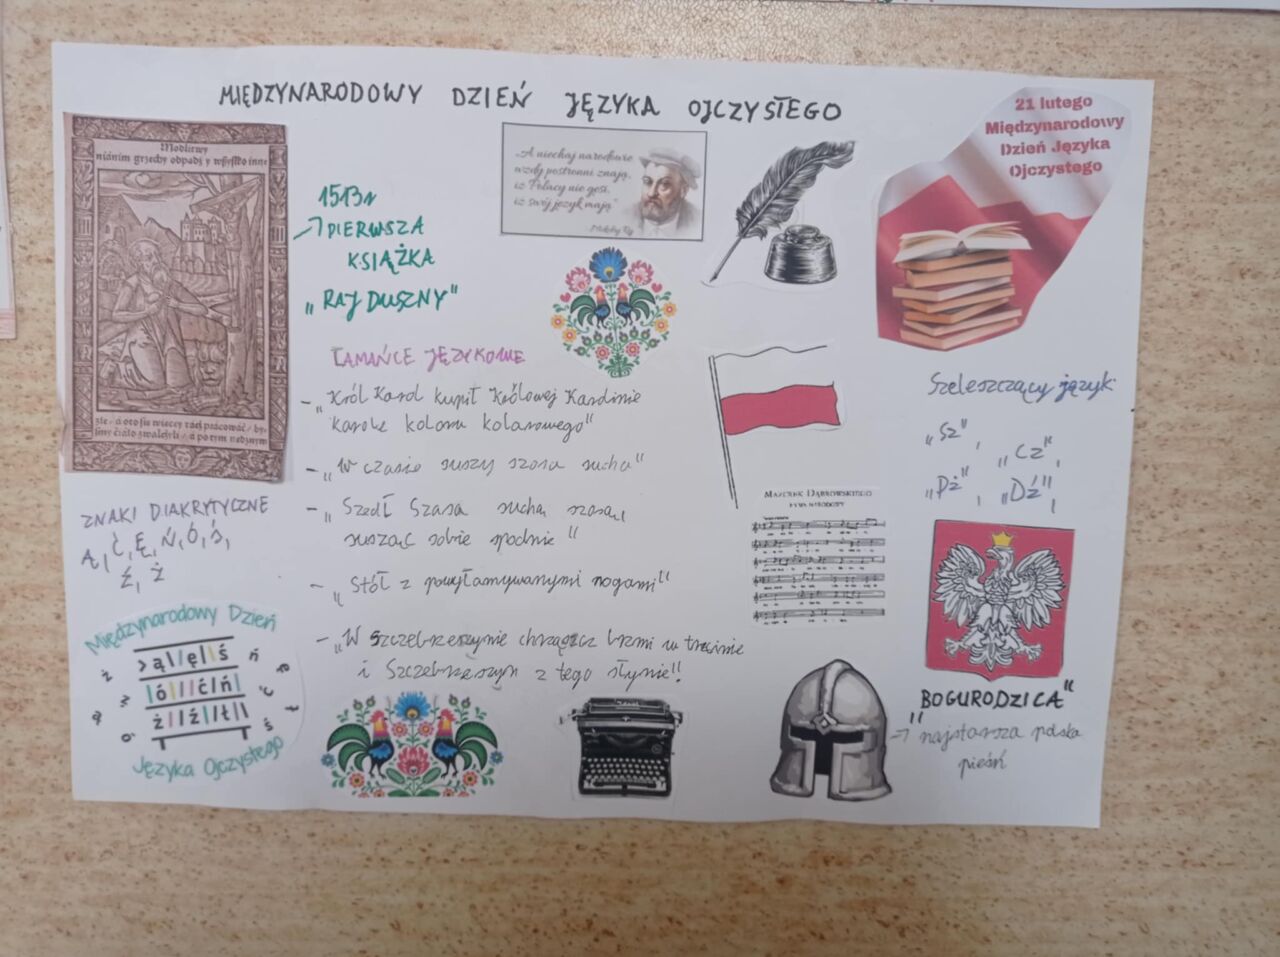 MIĘDZYNARODOWY DZIEŃ JĘZYKA OJCZYSTEGO
Modlitwy
nianim grzechy odpadz y wssystko inne
śle / a otosiu wieccy racz pracować / by-
liny ciało zwalczyli / a po tym nedznym
1513r
PIERWSZA
KSIĄŻKA
„RAJ DUSZNY"
„A niechaj narodowie
wżdy postronni znają,
iż Polacy nie gęsi,
iż swój język mają"
Mikołaj Rej
21 lutego
Międzynarodowy
Dzień Języka
Ojczystego
ŁAMAŃCE JĘZYKOWE
- „Król Karol kupił Królowej Karolinie
korale koloru koloowego"
- „W czasie suszy szosa sucha"
- „Szedł Szasa suchą szosą
susząc sobie spodnie"
- „Stół z powyłamywanymi nogami"
- „W Szczebrzeszynie chrząszcz brzmi w trzcinie
i Szczebrzeszyn z tego słynie"!
Szeleszczący język:
„Sz", „Cz",
„Dż", „Dź",
MAZUREK DĄBROWSKIEGO
HYMN NARODOWY
ZNAKI DIAKRYTYCZNE
Ą, Ć, Ę, Ń, Ó, Ś,
Ź, Ż
Międzynarodowy Dzień
ą ę ś
ó ć ń
ż ź ł
Języka Ojczystego
Ideal
„BOGURODZICA"
→ najstarsza polska
pieśń